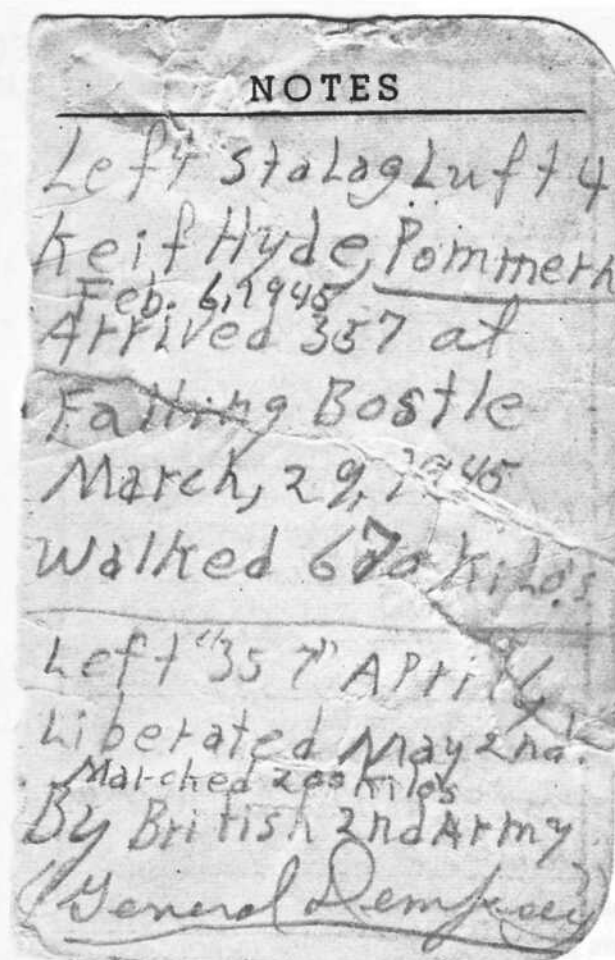 NOTES
Left Stalag Luft 4
Keif Hyde, Pommern
Feb. 6, 1945
Arrived 357 at
Falling Bostle
March, 29, 1945
Walked 670 Kilo's
Left "357" April
Liberated May 2nd.
Marched 200 Kilo's
By British 2nd Army
(General Dempsey)